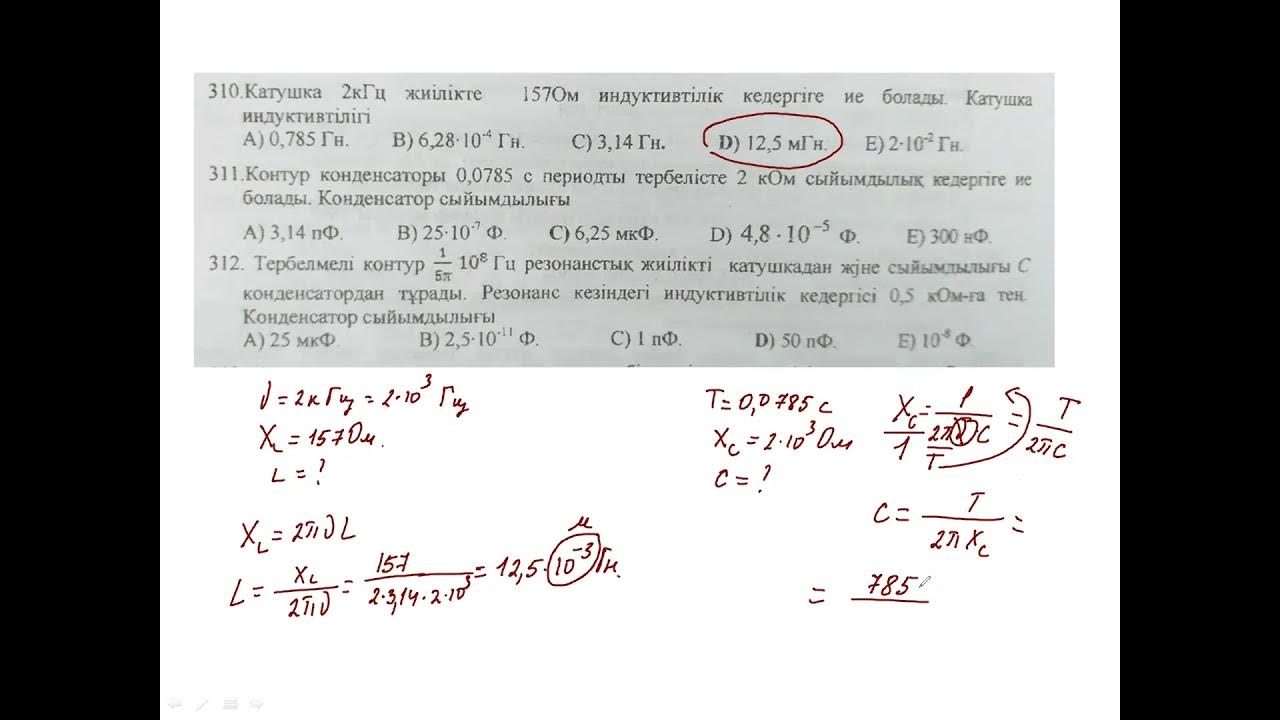 310.Катушка 2кГц жиілікте 157Ом индуктивтілік кедергіге ие болады. Катушка
индуктивтілігі
A) 0,785 Гн. B) 6,28·10⁻⁴ Гн. C) 3,14 Гн. D) 12,5 мГн. E) 2·10⁻² Гн.
311.Контур конденсаторы 0,0785 с периодты тербелісте 2 кОм сыйымдылық кедергіге ие
болады. Конденсатор сыйымдылығы
A) 3,14 пФ. B) 25·10⁻⁷ Ф. C) 6,25 мкФ. D) 4,8·10⁻⁵ Ф. E) 300 нФ.
312. Тербелмелі контур 1/5π 10⁸ Гц резонанстық жиілікті катушкадан жįне сыйымдылығы C
конденсатордан тұрады. Резонанс кезіндегі индуктивтілік кедергісі 0,5 кОм-ға тең.
Конденсатор сыйымдылығы
A) 25 мкФ. B) 2,5·10⁻¹¹ Ф. C) 1 пФ. D) 50 пФ. E) 10⁻⁸ Ф.
ν = 2кГц = 2·10³ Гц
X_L = 157Ом.
L = ?
X_L = 2πνL
L = X_L/2πν = 157/2·3,14·2·10³ = 12,5·10⁻³ Гн.
м
T = 0,0785 с
X_C = 2·10³ Ом
C = ?
X_C/1 = 1/2πνC = T/2πC
T
C = T/2πX_C =
= 785